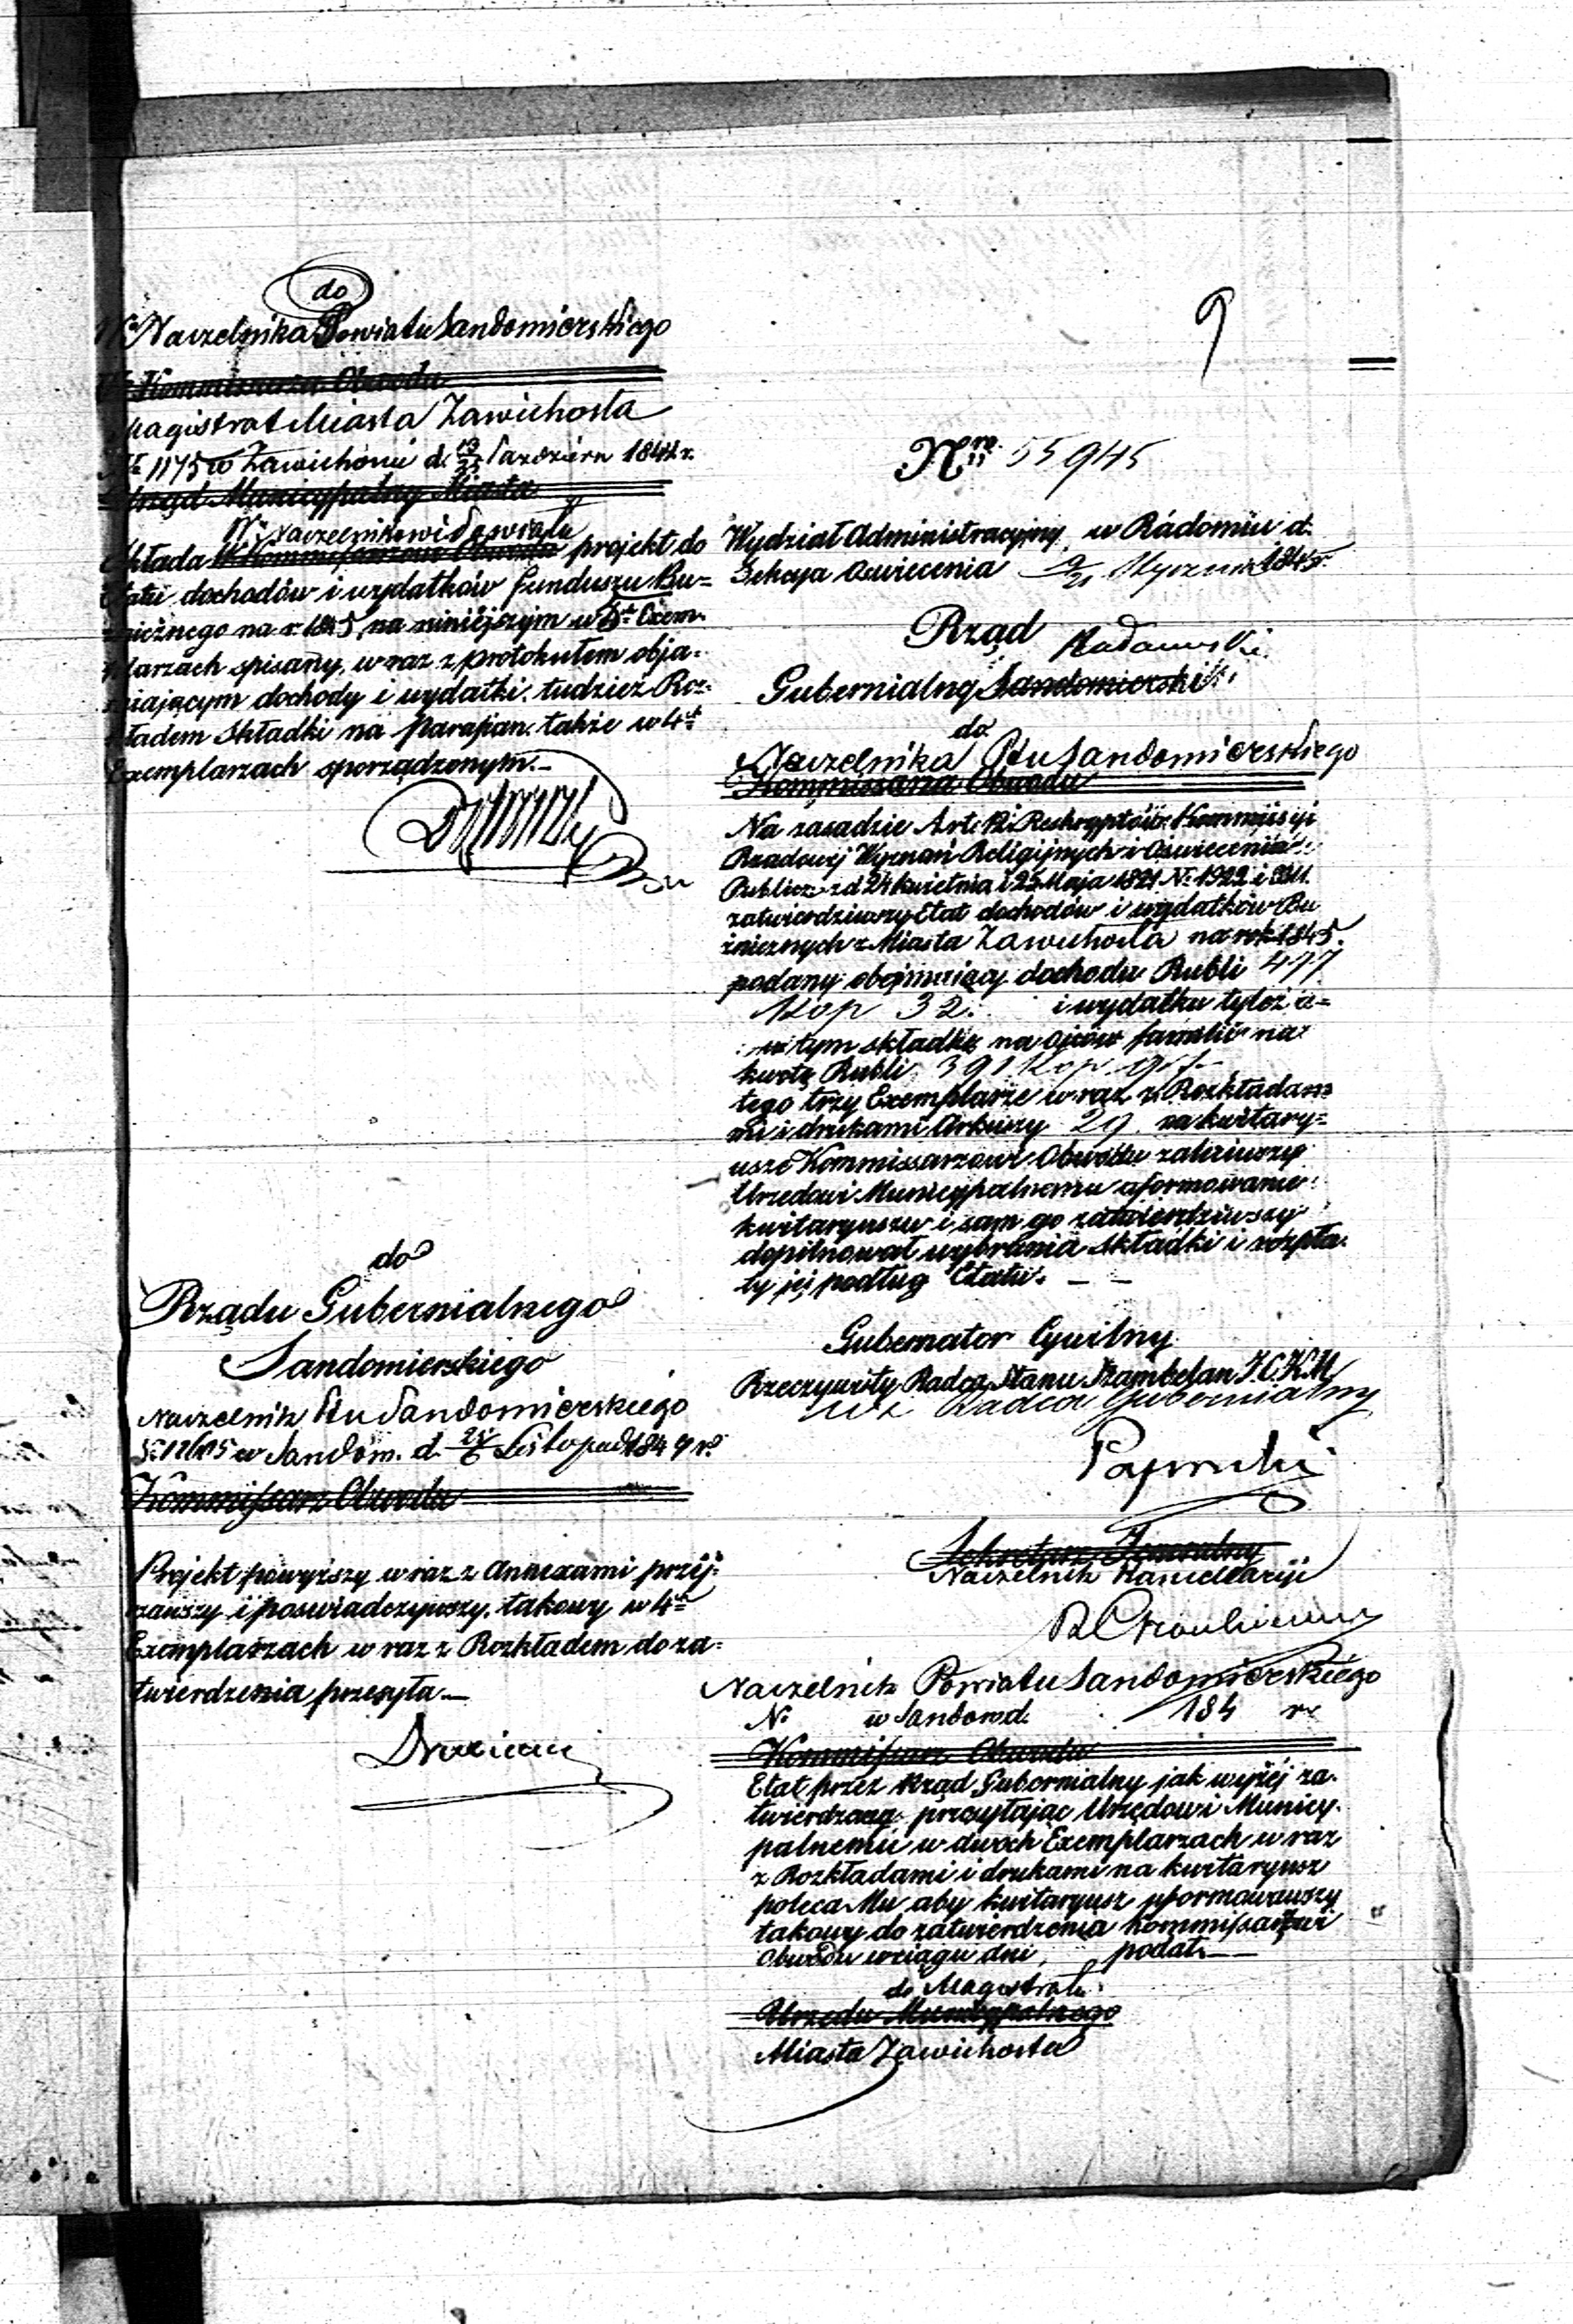 do
Naczelnika Powiatu Sandomierskiego
Kommissarza Obwodu
Magistrat Miasta Zawichosta
No 1175 w Zawichoście d. 13/25 Paździer 1844 r.
Urząd Municypalny Miasta
W. Naczelnikowi Powiatu
składa W. Kommissarzowi Obwodu projekt do
Etatu dochodów i wydatków funduszu Bu=
żnicznego na r. 1845 na niniejszym w 4ch Exem=
plarzach spisany, wraz z protokułem obja=
śniającym dochody i wydatki, tudzież Roz=
kładem składki na Parafian także w 4ch
Exemplarzach sporządzonym.—
do
Rządu Gubernialnego
Sandomierskiego
Naczelnik Ptu Sandomierskiego
w Sandom. d. Listopad 184
Kommissarz Obwodu
Projekt powyższy wraz z Annexami przej=
rzawszy i poświadczywszy, takowy w 4ch
Exemplarzach wraz z Rozkładem do za=
twierdzenia przesyła—
9
Nro 55945
Wydział Administracyjny w Radomiu d.
Sekcya Oświecenia 9/21 Stycznia 1845 r.
Rząd
Radomski
Gubernialny Sandomierski
do
Naczelnika Ptu Sandomierskiego
Kommissarza Obwodu
Na zasadzie Art. i Reskryptów Kommissyi
Rządowej Wyznań Religijnych i Oświecenia
Publicz: z d 24 Kwietnia i 25 Maja 1821 No 1922 i
zatwierdziwszy Etat dochodów i wydatków Bu
żnicznych z Miasta Zawichosta na rok 1845.
podany obejmujący dochodu Rubli 477
Kop 32. i wydatku tyleż a=
w tym składkę na Ojców familii na
kwotę Rubli 391 Kop.
tego trzy Exemplarze wraz z Rozkłada=
mi i drukami Arkuszy 29 na kwitary=
usze Kommissarzowi Obwodu
Urzędowi Municypalnemu uformowanie
kwitaryuszu i sam go zatwierdziwszy
dopilnował wybrania składki i wypła=
ty jej podług Etatu. — —
Gubernator Cywilny
Rzeczywisty Radca Stanu Szambelan J.C.K.M
Radca Gubernialny
Sekretarz Jeneralny
Naczelnik Kancellaryi
Naczelnik Powiatu Sandomierskiego
No w Sandom d. 184 r.
Kommissarz Obwodu
Etat przez Rząd Gubernialny jak wyżej za=
twierdzony przesyłając Urzędowi Municy=
palnemu w dwoch Exemplarzach wraz
z Rozkładami i drukami na kwitaryusz
poleca Mu aby kwitaryusz uformowawszy
takowy do zatwierdzenia Kommissarzowi
Obwodu w ciągu dni podał.—
do Magistratu
Urzędu Municypalnego
Miasta Zawichosta